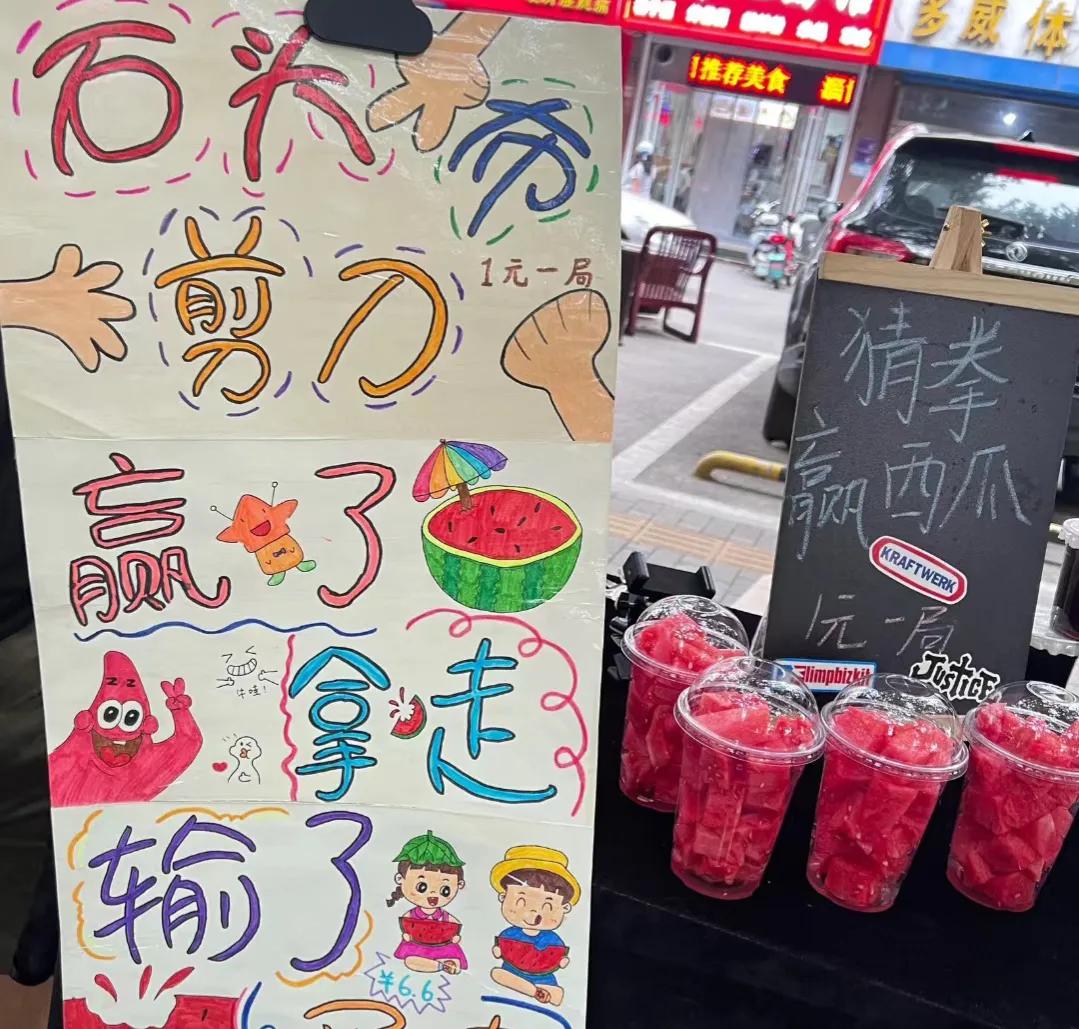 石头布
剪刀
1元一局
赢了
牛哇!
拿走
输了
¥6.6
推荐美食 福
多威体
猜拳
赢西瓜
KRAFTWERK
1元一局
limpbizkit
JUSTICE